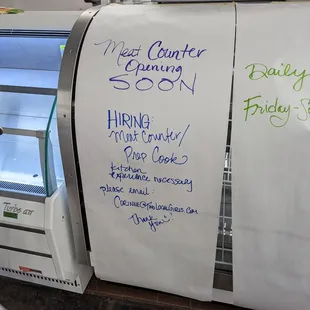 Meat Counter
Opening
SOON
HIRING:
Meat Counter/
Prep Cook
Kitchen
Experience necessary
please email:
Thank
you!
Daily
Friday-S
Turbo air